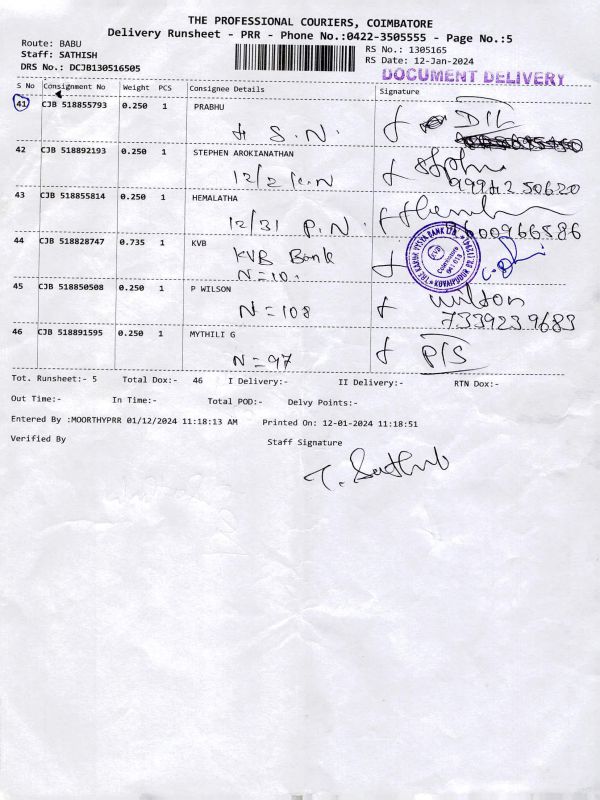 THE PROFESSIONAL COURIERS, COIMBATORE
Delivery Runsheet - PRR - Phone No.:0422-3505555 - Page No.:5
Route: BABU
RS No.: 1305165
Staff: SATHISH
RS Date: 12-Jan-2024
DRS No.: DCJB130516505
DOCUMENT DELIVERY
S No Consignment No Weight PCS Consignee Details Signature
41 CJB 518855793 0.250 1 PRABHU
4 S.N. D/L
42 CJB 518892193 0.250 1 STEPHEN AROKIANATHAN
12/2 K.N
9994250620
43 CJB 518855814 0.250 1 HEMALATHA
12/31 P.N.
9600966586
44 CJB 518828747 0.735 1 KVB
KVB Bank
N=10.
THE KARUR VYSYA BANK LTD.
KVB
Coimbatore
641 013
45 CJB 518850508 0.250 1 P WILSON
N=108 wilson
7339239683
46 CJB 518891595 0.250 1 MYTHILI G
N=97 P/S
Tot. Runsheet:- 5 Total Dox:- 46 I Delivery:- II Delivery:- RTN Dox:-
Out Time:- In Time:- Total POD:- Delvy Points:-
Entered By :MOORTHYPRR 01/12/2024 11:18:13 AM Printed On: 12-01-2024 11:18:51
Verified By Staff Signature
T. Sathish